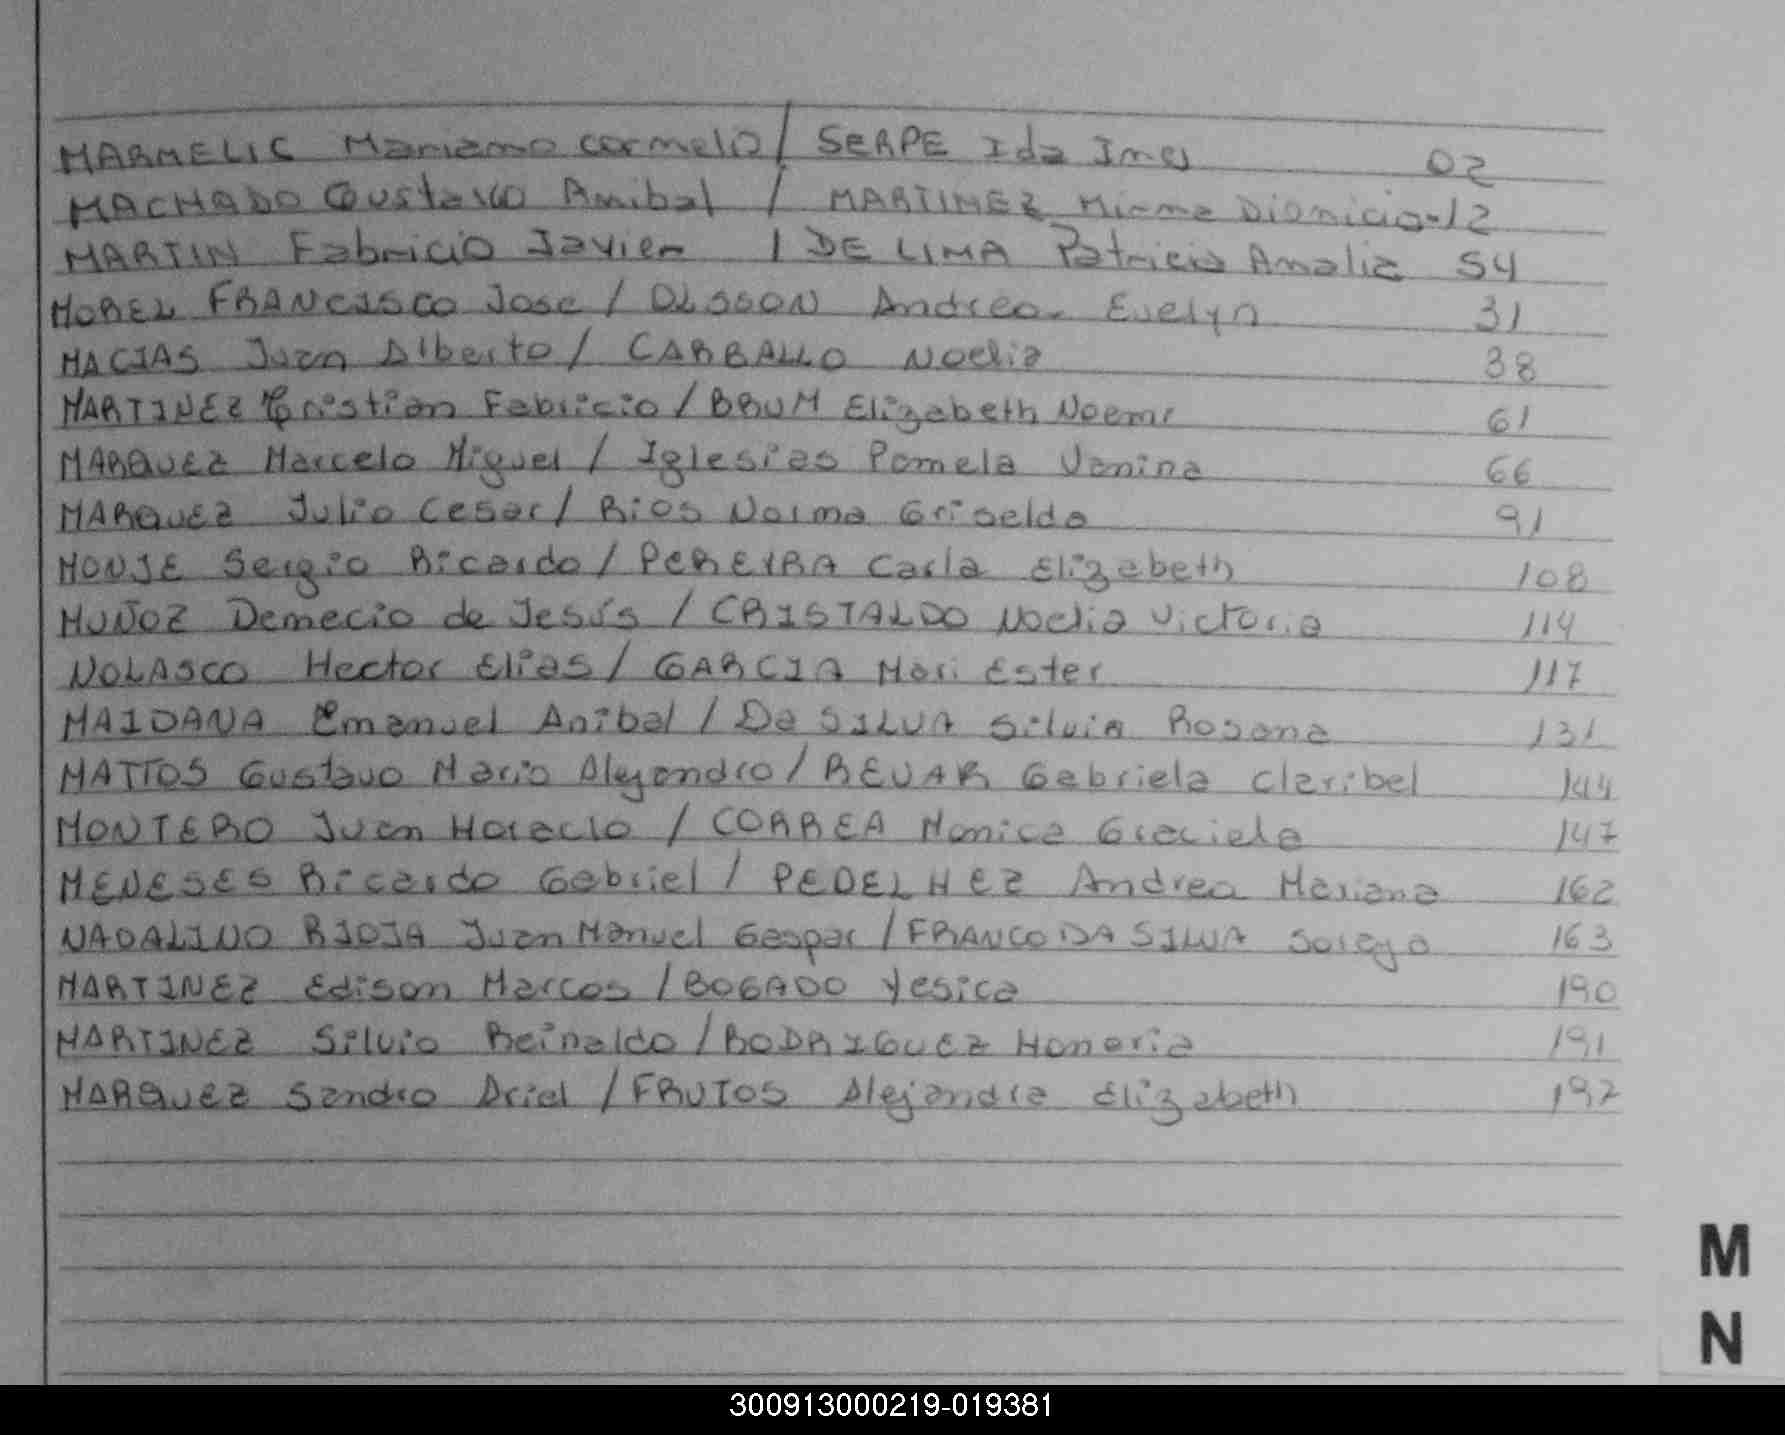 MARMELIC Mariano Carmelo / SERPE Ida Ines 02
MACHADO Gustavo Anibal / MARTINEZ Mirna Dionicia - 12
MARTIN Fabricio Javier / DE LIMA Patricia Analia 54
MOREL FRANCISCO Jose / OLSSON Andrea Evelyn 31
MACIAS Juan Alberto / CARBALLO Noelia 38
MARTINEZ Cristian Fabricio / BRUM Elizabeth Noemi 61
MARQUEZ Marcelo Miguel / Iglesias Pamela Vanina 66
MARQUEZ Julio Cesar / Rios Norma Griselda 91
MONJE Sergio Ricardo / PEREIRA Carla Elizabeth 108
MUÑOZ Demecio de Jesús / CRISTALDO Noelia Victoria 114
NOLASCO Hector Elias / GARCIA Mari Ester 117
MAIDANA Emanuel Anibal / Da SILVA Silvia Rosana 131
MATTOS Gustavo Mario Alejandro / BEVAR Gabriela Claribel 144
MONTERO Juan Horacio / CORREA Monica Graciela 147
MENESES Ricardo Gabriel / PEDELHEZ Andrea Mariana 162
NADALINO RIOJA Juan Manuel Gaspar / FRANCO DA SILVA Soraya 163
MARTINEZ Edison Marcos / BOGADO Yesica 190
MARTINEZ Silvio Reinaldo / RODRIGUEZ Honoria 191
MARQUEZ Sandro Ariel / FRUTOS Alejandra Elizabeth 192
M
N
300913000219-019381